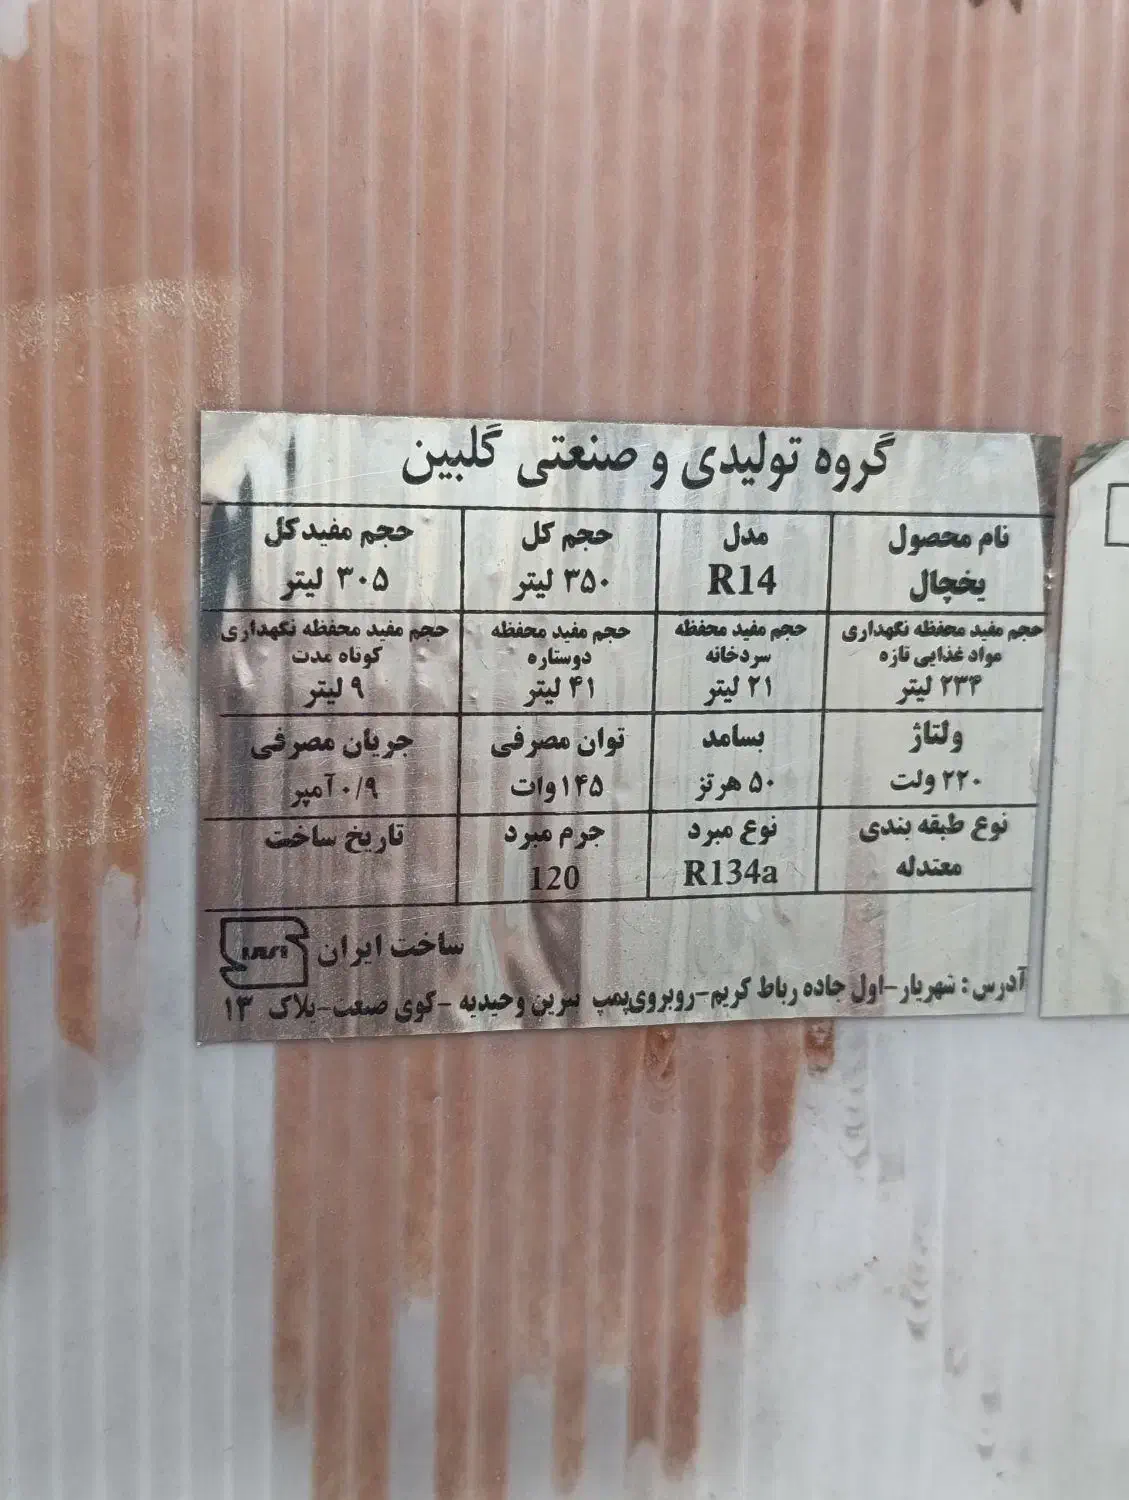 گروه تولیدی و صنعتی گلبین
نام محصول مدل حجم کل حجم مفید کل
یخچال R14 ۳۵۰ لیتر ۳۰۵ لیتر
حجم مفید محفظه نگهداری حجم مفید محفظه حجم مفید محفظه حجم مفید محفظه نگهداری
مواد غذایی تازه سردخانه دوستاره کوتاه مدت
۲۳۴ لیتر ۲۱ لیتر ۴۱ لیتر ۹ لیتر
ولتاژ بسامد توان مصرفی جریان مصرفی
۲۲۰ ولت ۵۰ هرتز ۱۴۵ وات ۰/۹ آمپر
نوع طبقه بندی نوع مبرد جرم مبرد تاریخ ساخت
معتدله R134a 120
ساخت ایران
آدرس : شهریار-اول جاده رباط کریم-روبروی پمپ بنزین وحیدیه -کوی صنعت-پلاک ۱۳